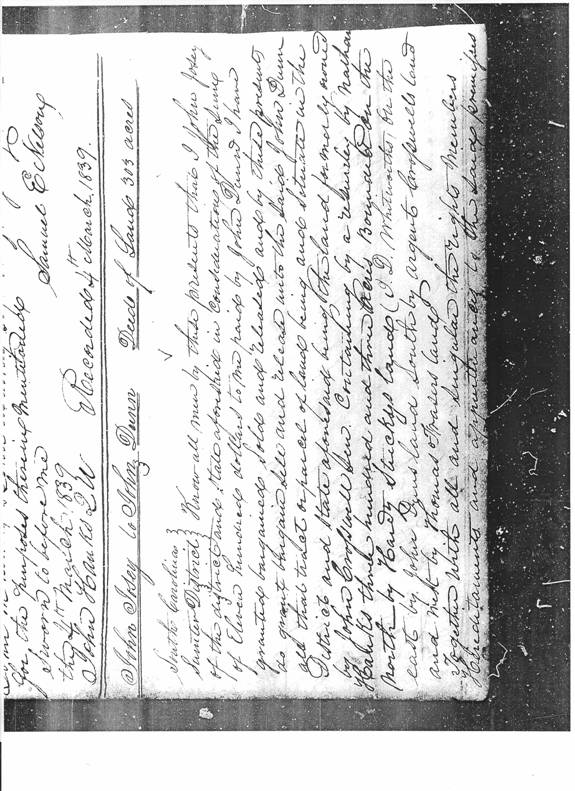 for the purposes therein mentioned
sworn to before me
the 4th March 1839 Samuel E Nelson
John Hanks Q U Recorded 4th March 1839.
John Josey to John Dunn Deed of Land 303 acres
South Carolina }
Sumter District } Know all men by these presents that I John Josey
of the district and state aforesaid in consideration of the sum
of Eleven hundred dollars to me paid by John Dunn I have
granted bargained sold and released and by these presents
do grant bargain sell and release unto the said John Dunn
all that tract or parcel of land lying and situate in the
District and State aforesaid being the land formerly owned
by John Cropswell Sen. Containing by a resurvey by Nathan
three hundred and three acres Bounded on the
north by Hardy Stuckes land (J D Whitworths) on the
east by John Dunns land South by argent Cropswells land
and west by Thomas land
Together with all and singular the rights members
hereditaments and appurtenances to the said premises